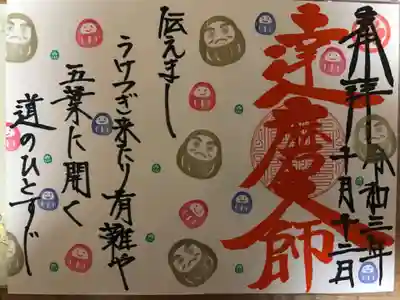 奉拝 令和三年
十月十二日
達磨大師
伝えまし
うけつぎ来たり有難や
五葉に開く
道のひとすじ